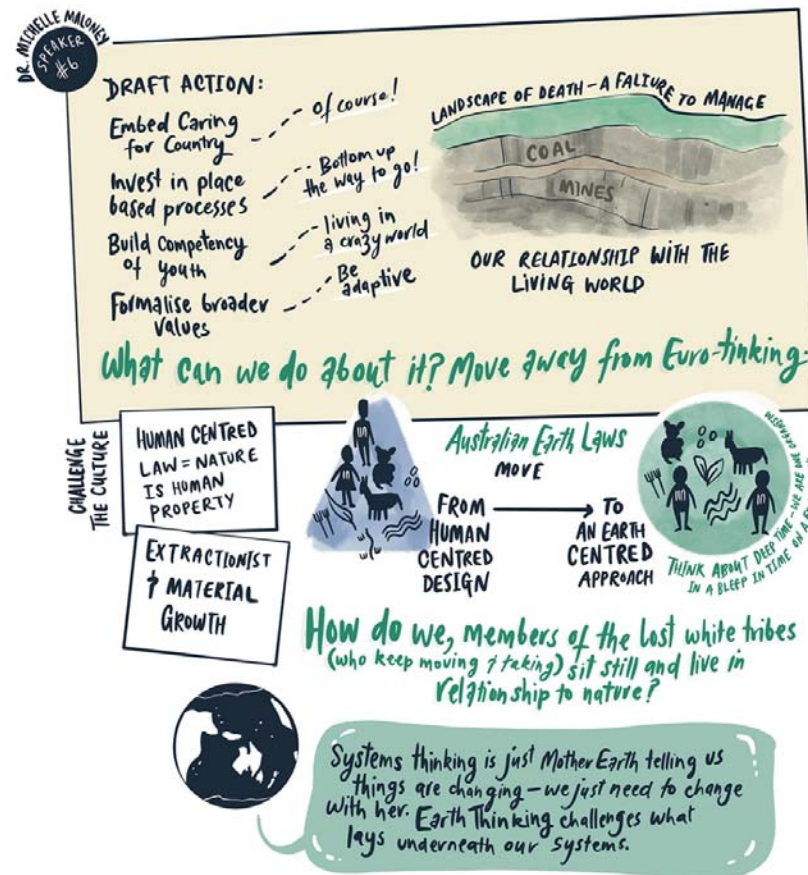 DR. MICHELLE MALONEY
SPEAKER
#6
DRAFT ACTION:
Embed Caring
for Country
of course!
Invest in place
based processes
Bottom up
the way to go!
Build Competency
of youth
living in
a crazy world
Formalise broader
values
Be
adaptive
LANDSCAPE OF DEATH – A FALIURE TO MANAGE
COAL
MINES
OUR RELATIONSHIP WITH THE
LIVING WORLD
What can we do about it? Move away from Euro-tinking
CHALLENGE
THE CULTURE
HUMAN CENTRED
LAW = NATURE
IS HUMAN
PROPERTY
EXTRACTIONIST
+ MATERIAL
GROWTH
Australian Earth Laws
MOVE
FROM
HUMAN
CENTRED
DESIGN
TO
AN EARTH
CENTRED
APPROACH
THINK ABOUT DEEP TIME – WE ARE
IN A BLEEP IN TIME ON A
How do we, members of the lost white tribes
(who keep moving + taking) sit still and live in
relationship to nature?
Systems thinking is just Mother Earth telling us
things are changing – we just need to change
with her. Earth Thinking challenges what
lays underneath our systems.